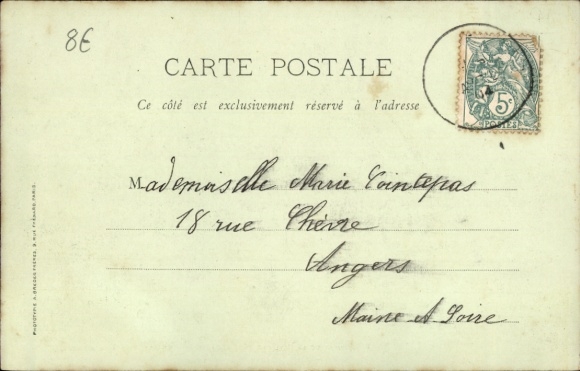 8€
CARTE POSTALE
Ce côté est exclusivement réservé à l'adresse
5c
POSTES
04
Mademoiselle Marie Pointepas
18 rue Chèvre
Angers
Maine & Loire